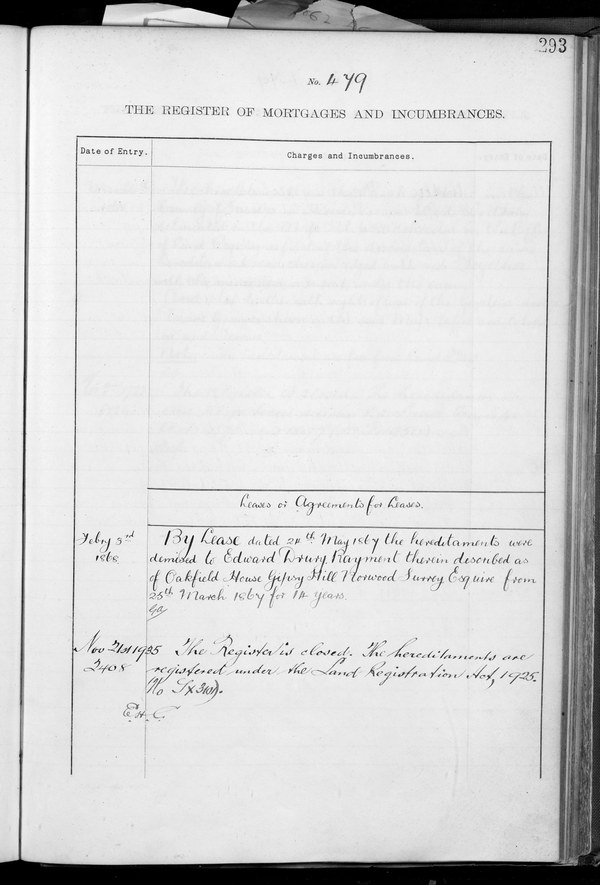 293
No. 479
THE REGISTER OF MORTGAGES AND INCUMBRANCES.
Date of Entry.
Charges and Incumbrances.
Leases or Agreements for Leases.
Feby 3rd
1868
By Lease dated 24th May 1867 the hereditaments were
demised to Edward Drury Rayment therein described as
of Oakfield House Gipsy Hill Norwood Surrey Esquire from
25th March 1867 for 14 years.
Nov 21st 1925
2408
The Register is closed. The hereditaments are
registered under the Land Registration Act, 1925.
No
E.H.C.